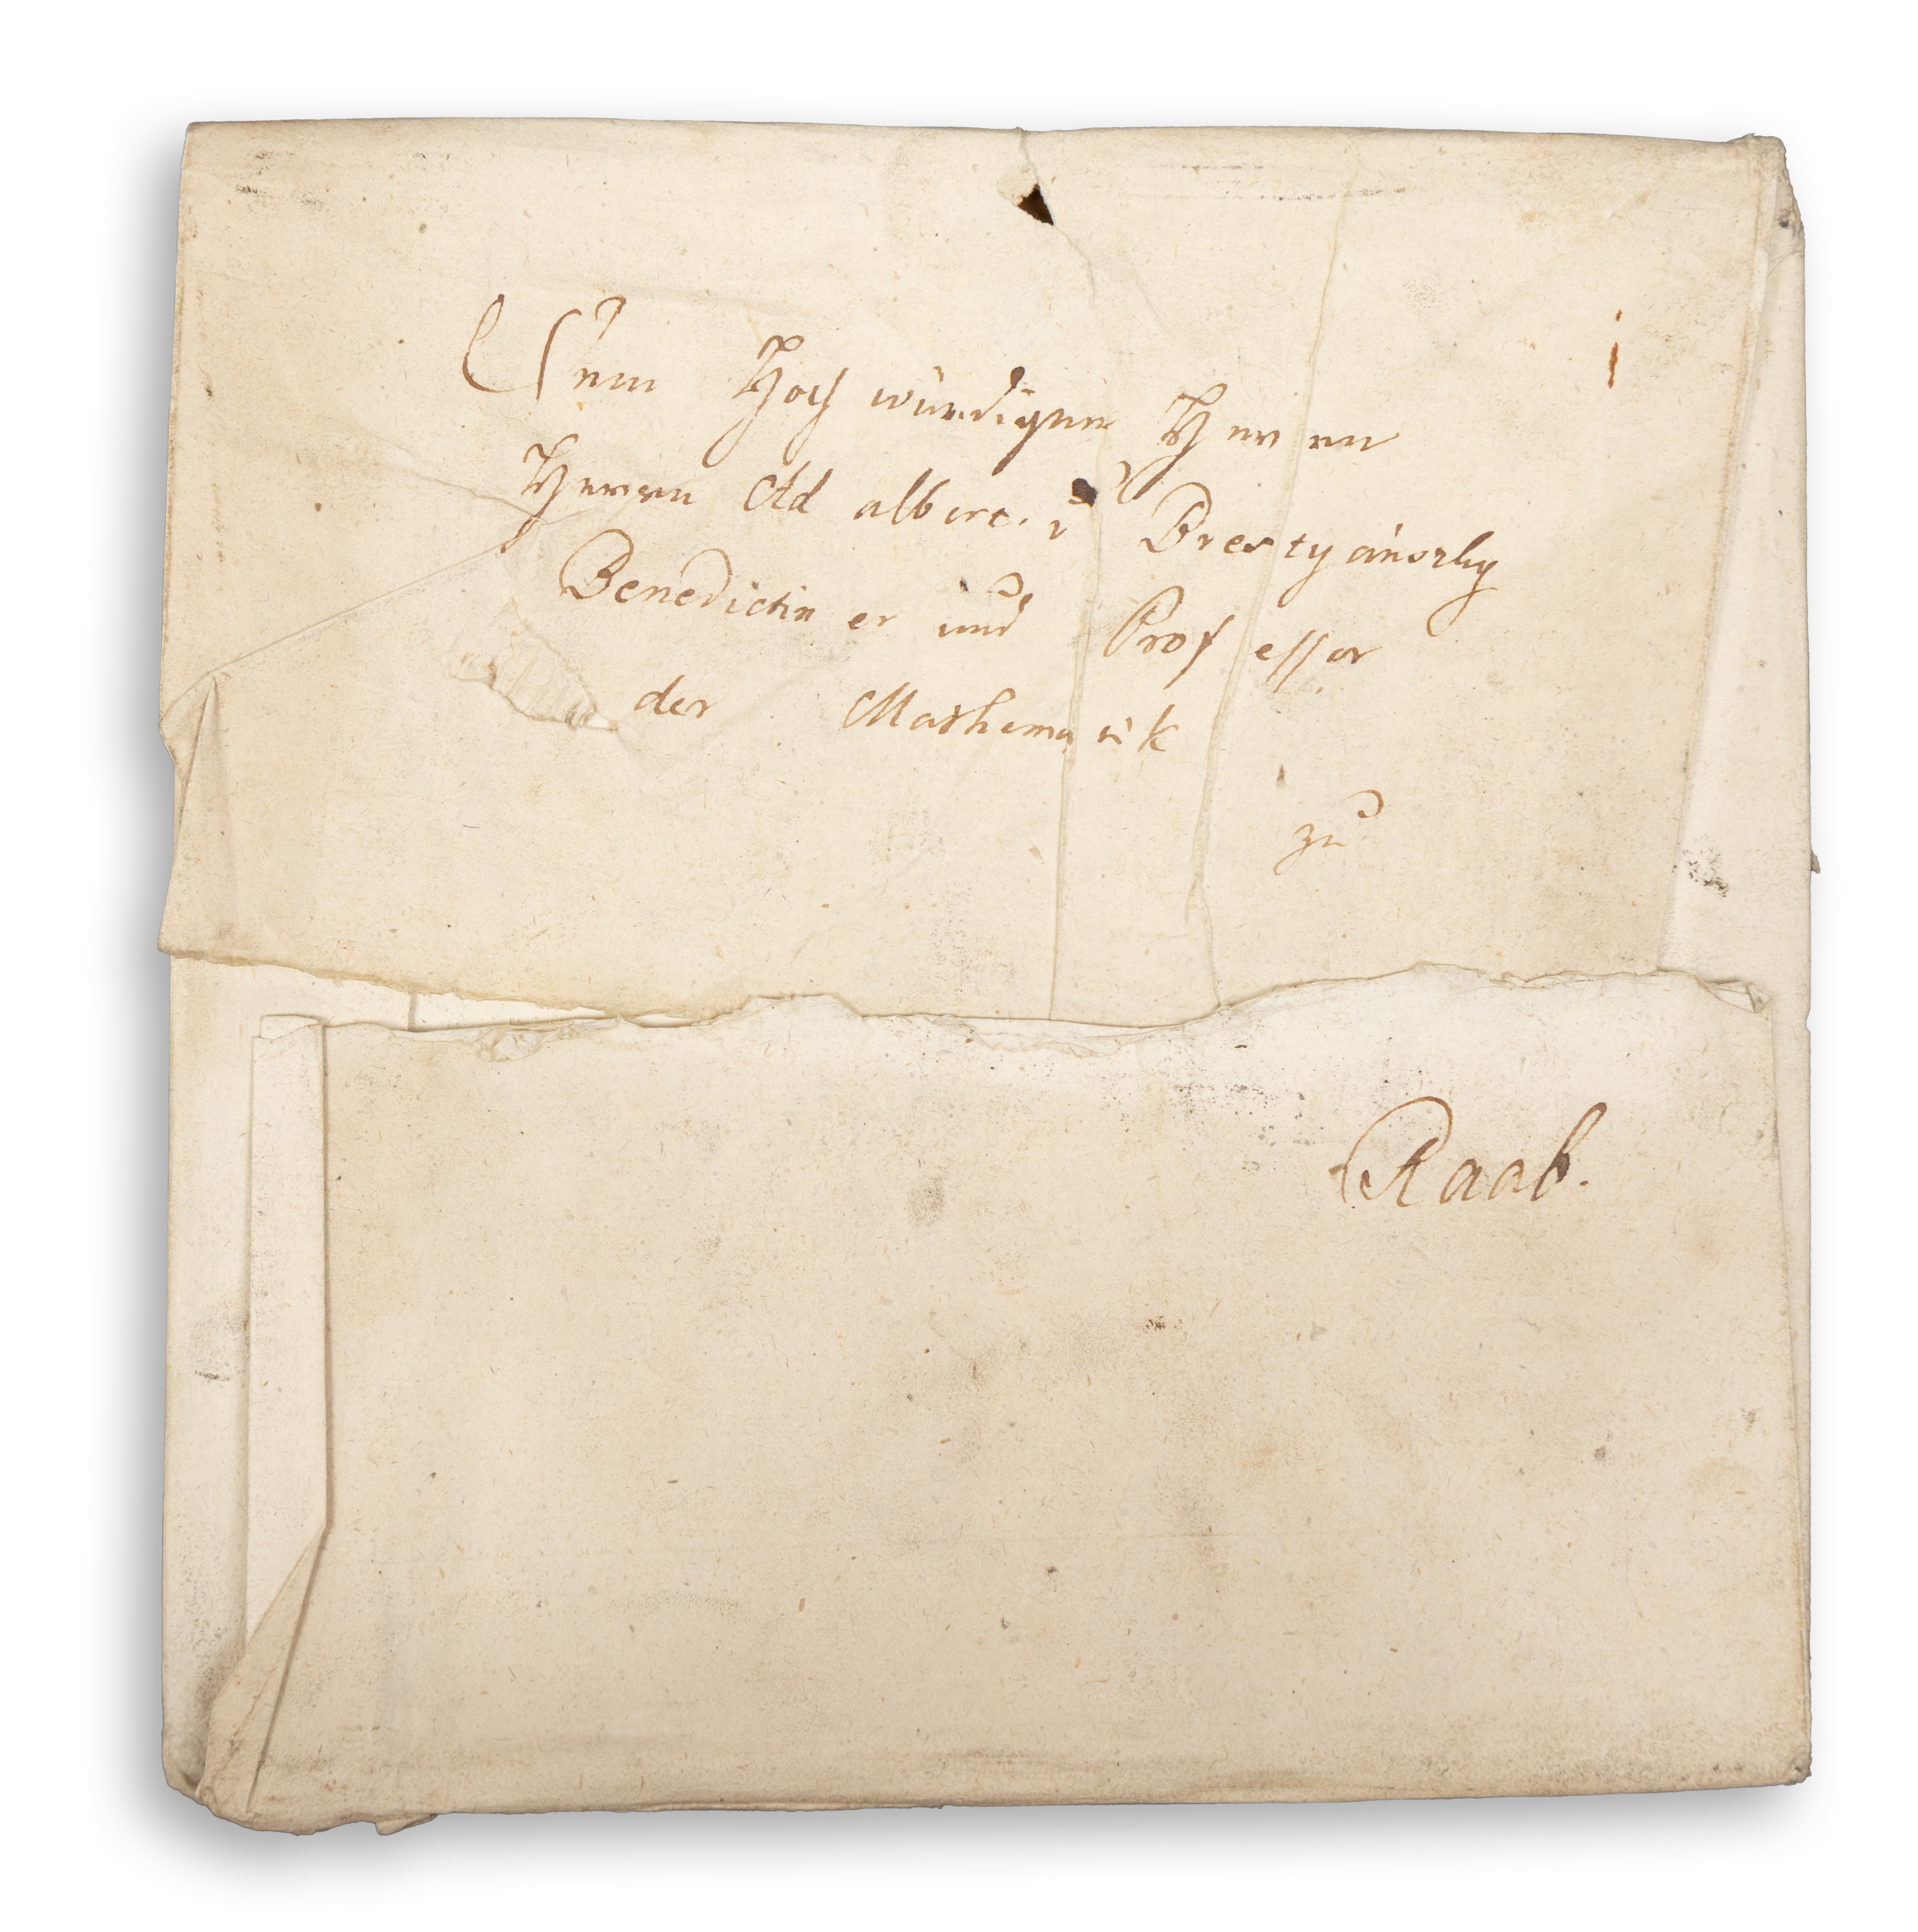 Dem Hoch würdigen Herren
Herren Ad albert v Bresty ánszky
Benedictin er und Prof essor
der Mathema tik
zu
Raab.